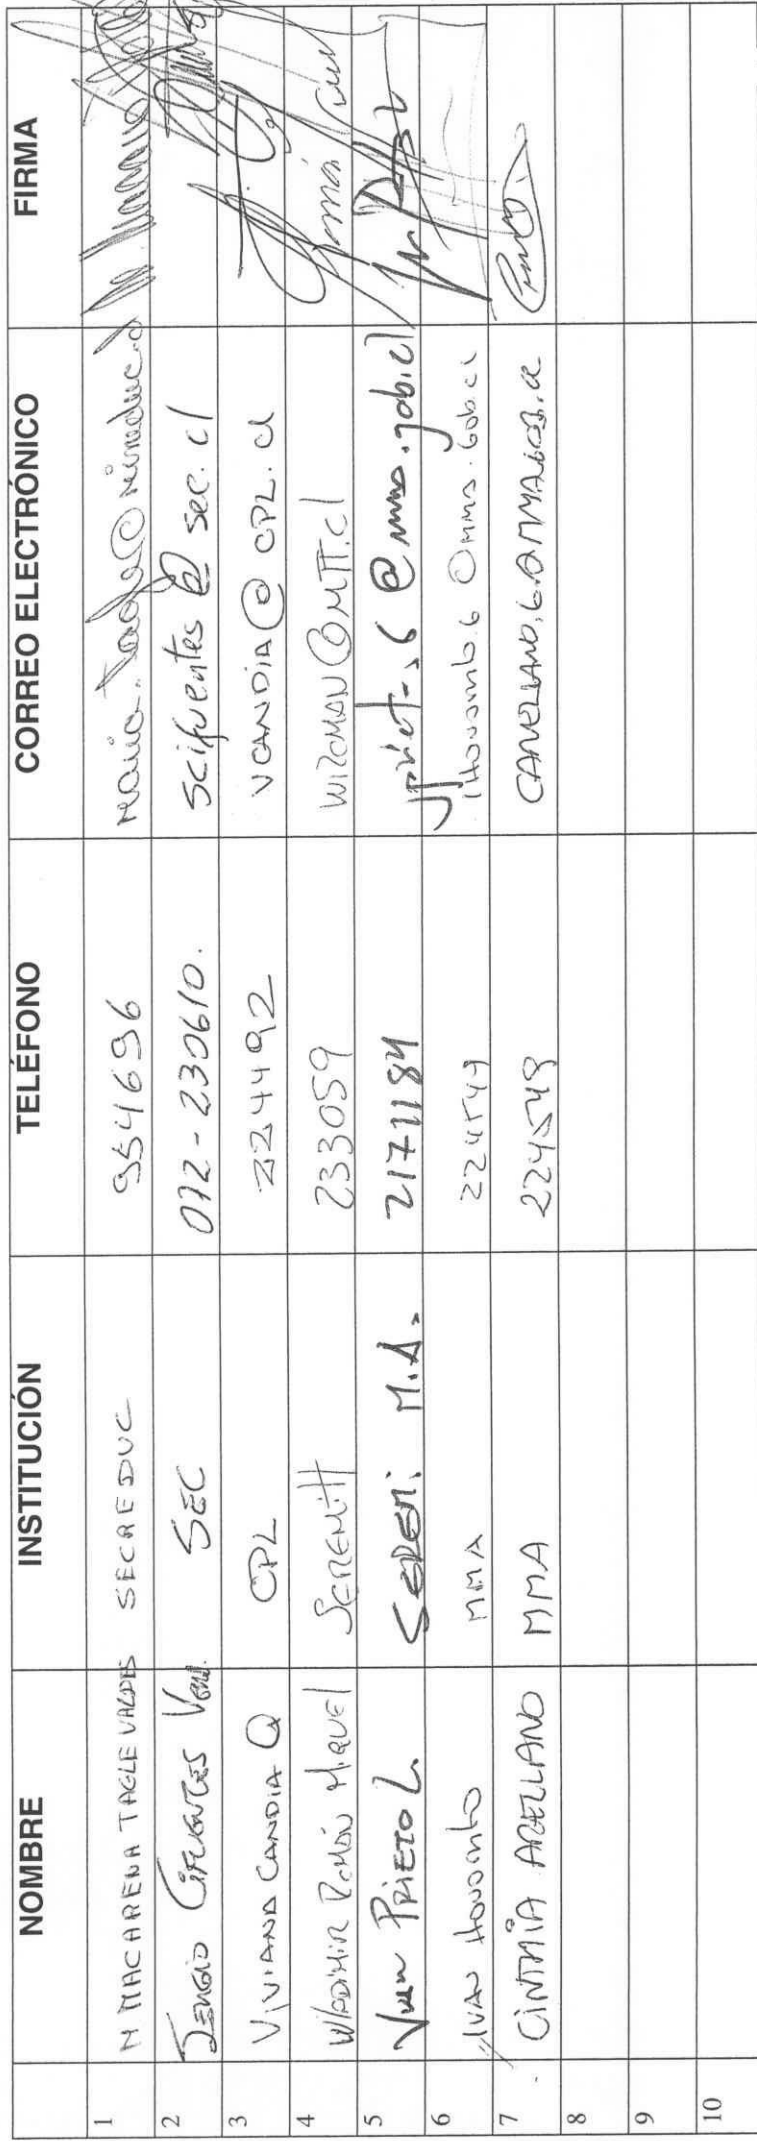 NOMBRE INSTITUCIÓN TELÉFONO CORREO ELECTRÓNICO FIRMA
1 M MACARENA TAGLE VALDES SECREDUC 9554696 maria.tagle@mineduc.cl
2 SERGIO CIFUENTES SEC 072-230610. scifuentes@sec.cl
3 VIVIANA CANDIA Q CPL 224492 VCANDIA@CPL.cl
4 WLADIMIR ROMÁN MIQUEL SEREMITT 233059 WROMAN@MTT.cl
5 JUAN PRIETO L. SEREMI M.A. 2171184 @mma.gob.cl
6 IVAN MMA 224549 @mma.gob.cl
7 CINTHIA ARELLANO MMA 224549 CARELLANO.6@MMA.GOB.CL
8
9
10